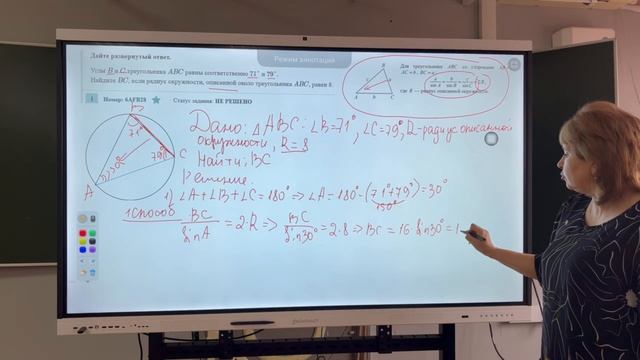 Дайте развернутый ответ.
Режим аннотаций
Углы B и C треугольника ABC равны соответственно 71° и 79°.
Найдите BC, если радиус окружности, описанной около треугольника ABC, равен 8.
1 Номер: 6AFB28 Статус задания: НЕ РЕШЕНО
Для треугольника ABC со сторонами
AC = b, BC = a
a/sin A = b/sin B = c/sin C = 2R,
где R — радиус описанной окружности.
B
A b C
B
71°
79°
C
A
30°
Дано: △ABC: ∠B=71°, ∠C=79°, R-радиус описанной
окружности, R=8
Найти: BC
Решение
1) ∠A+∠B+∠C=180° ⇒ ∠A=180°-(71°+79°)=30°
150°
1 способ BC/sinA = 2·R ⇒ BC/sin30° = 2·8 ⇒ BC = 16·sin30° = 1